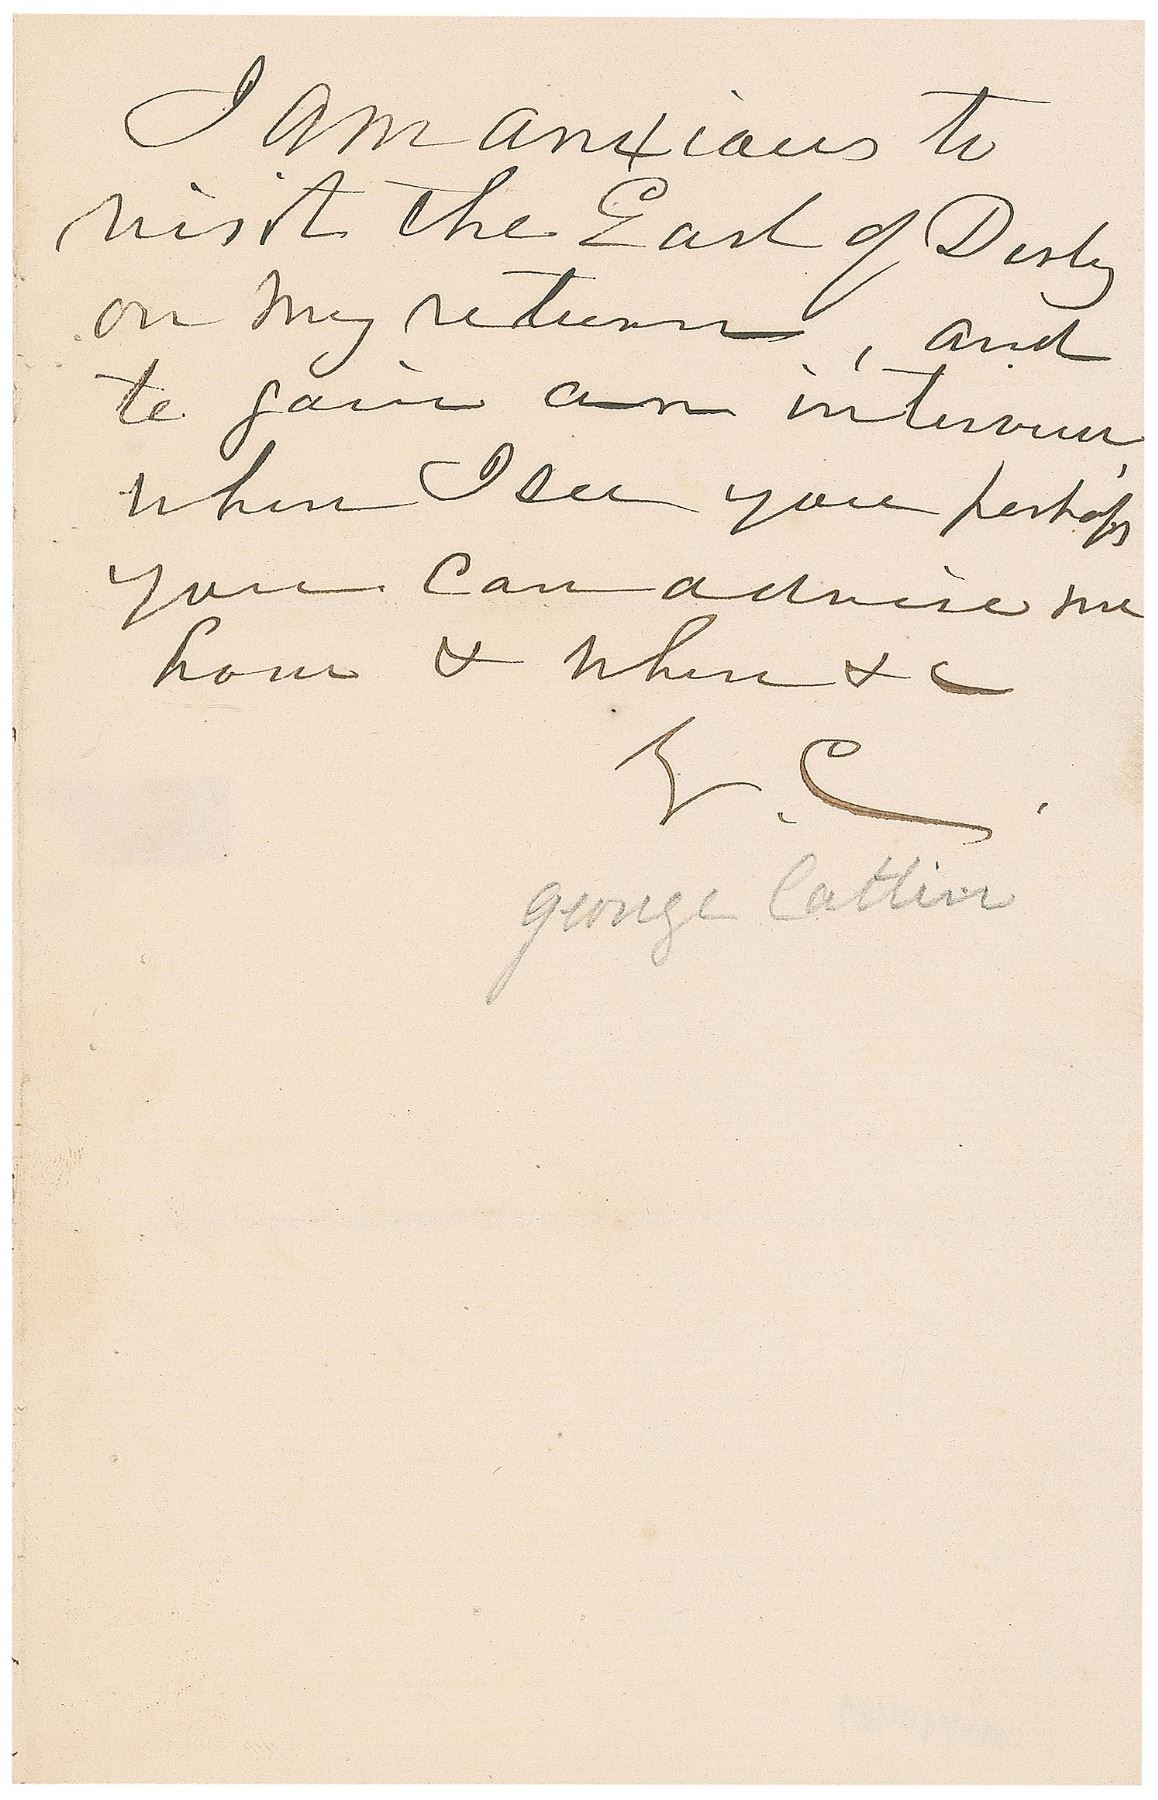 I am anxious to
visit the Earl of Derby
on my return, and
to gain an interview,
when I see you perhaps
you can advise me
how & when &c
G. C.
George Catlin